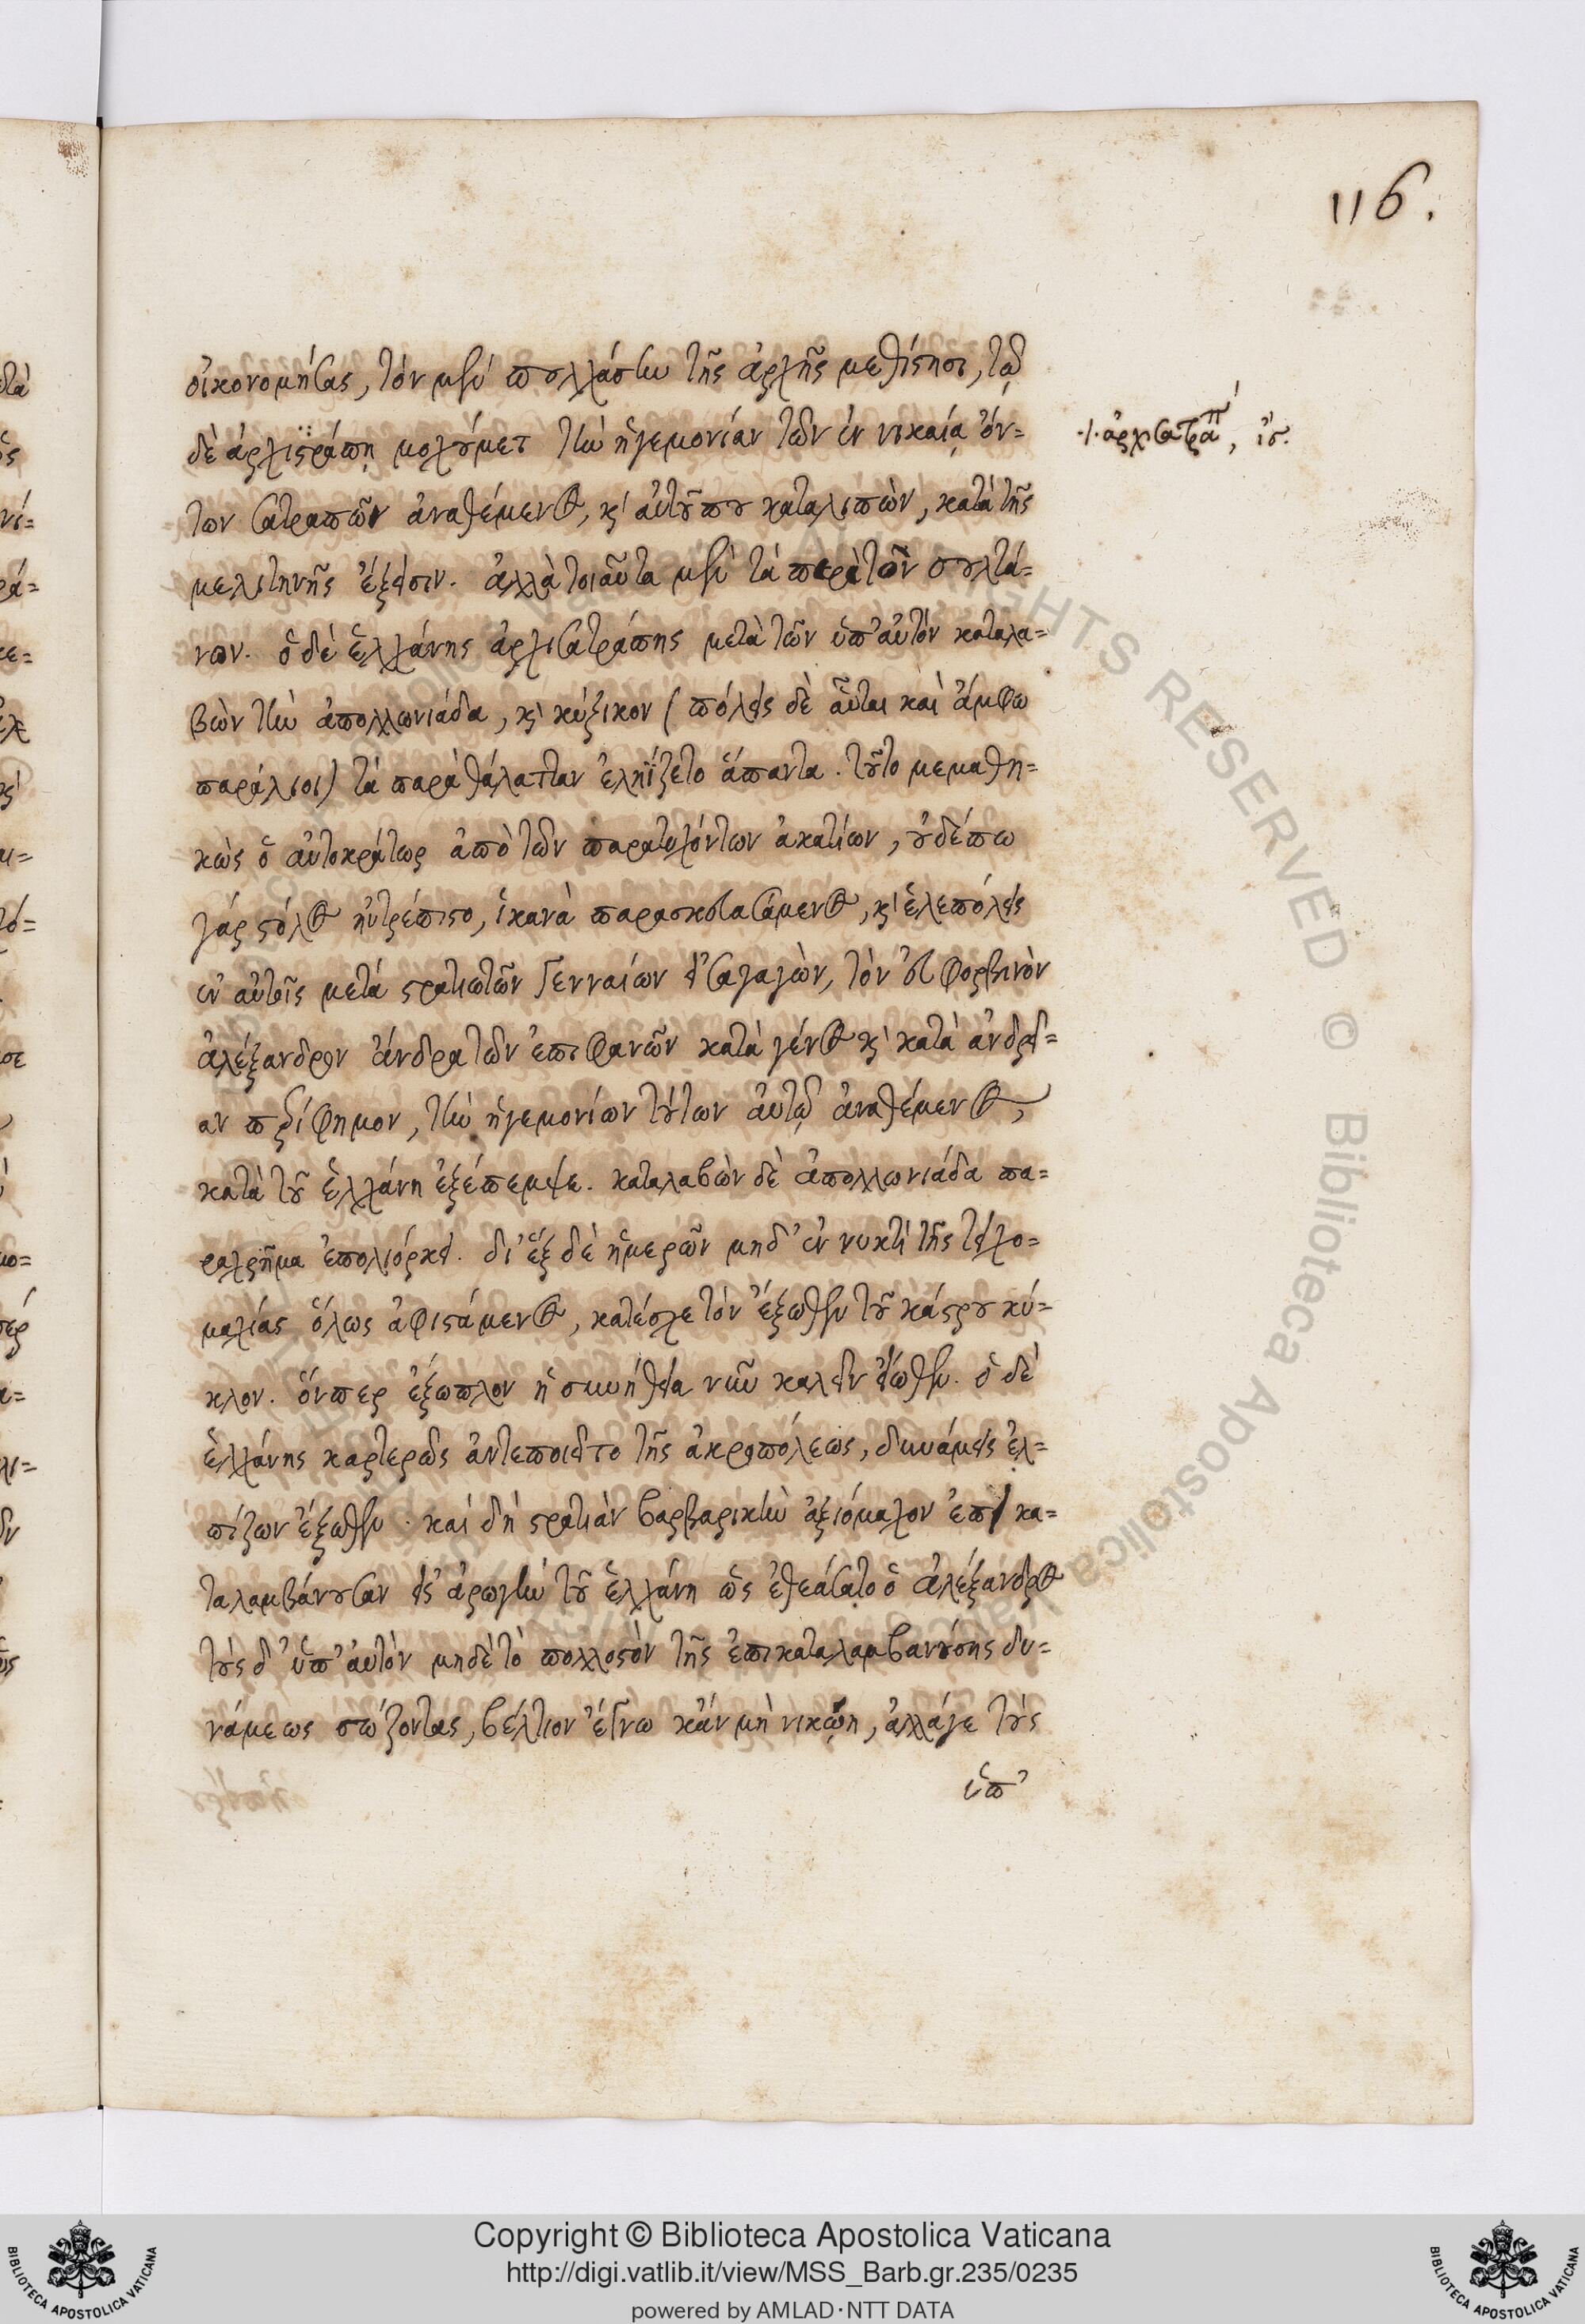 116.
οἰκονομήσας, τὸν μὲν πουλχάσην τῆς ἀρχῆς μεθίστησι, τῷ
δὲ ἀρχιστράπῃ μολχούμετ τὴν ἡγεμονίαν τῶν ἐν νικαίᾳ ὄν-
·/· ἀρχισατράπ, ἴσ.
των σατραπῶν ἀναθέμενος, κὶ αὐτοῦ που καταλιπὼν, κατὰ τῆς
μελιτηνῆς ἔξεισιν. ἀλλὰ τοιαῦτα μὲν τὰ περὶ τῶν σουλτά-
νων. ὁ δὲ ἑλχάνης ἀρχισατράπης μετὰ τῶν ὑπ' αὐτὸν καταλα-
βὼν τὴν ἀπολλωνιάδα, κὶ κύζικον (πόλεις δὲ αὗται καὶ ἄμφω
παράλιοι) τὰ παρὰ θάλατταν ἐληΐζετο ἅπαντα. τοῦτο μεμαθη-
κὼς ὁ αὐτοκράτωρ ἀπὸ τῶν παρατυχόντων ἀκατίων, οὐδέπω
γὰρ στόλος ηὐτρέπιστο, ἱκανὰ παρασκευασάμενος, κὶ ἑλεπόλεις
ἐν αὐτοῖς μετὰ στρατιωτῶν γενναίων εἰσαγαγὼν, τὸν εὐφορβινὸν
ἀλέξανδρον ἄνδρα τῶν ἐπιφανῶν κατὰ γένος κὶ κατὰ ἀνδρεί-
αν περίφημον, τὴν ἡγεμονίαν τούτων αὐτῷ ἀναθέμενος,
κατὰ τοῦ ἑλχάνη ἐξέπεμψε. καταλαβὼν δὲ ἀπολλωνιάδα πα-
ραχρῆμα ἐπολιόρκει. δι' ἓξ δὲ ἡμερῶν μηδ' ἐν νυκτὶ τῆς τειχο-
μαχίας ὅλως ἀφιστάμενος, κατέσχε τὸν ἔξωθεν τοῦ κάστρου κύ-
κλον. ὅνπερ ἐξώπλον ἡ συνήθεια νῦν καλεῖν εἴωθεν. ὁ δὲ
ἑλχάνης καρτερῶς ἀντεποιεῖτο τῆς ἀκροπόλεως, δυνάμεις ἐλ-
πίζων ἔξωθεν. καὶ δὴ στρατιὰν βαρβαρικὴν ἀξιόμαχον ἐπικα-
ταλαμβάνουσαν εἰς ἀρωγὴν τοῦ ἑλχάνη ὡς ἐθεάσατο ὁ ἀλέξανδρος
τοὺς δ' ὑπ' αὐτὸν μηδὲ τὸ πολλοστὸν τῆς ἐπικαταλαμβανούσης δυ-
νάμεως σώζοντας, βέλτιον ἔγνω κἂν μὴ νικῴη, ἀλλάγε τοὺς
ὑπ'
Copyright © Biblioteca Apostolica Vaticana
http://digi.vatlib.it/view/MSS_Barb.gr.235/0235
powered by AMLAD·NTT DATA